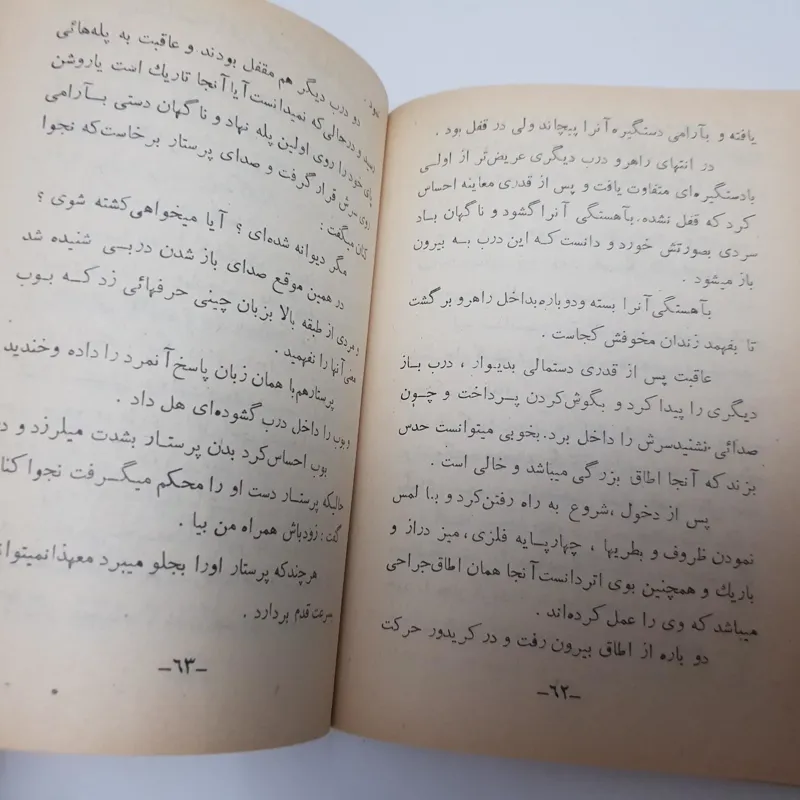 یافته و بآرامی دستگیره آنرا پیچاند ولی در قفل بود .
در انتهای راهرو درب دیگری عریض‌تر از اولی
بادستگیره‌ای متفاوت یافت و پس از قدری معاینه احساس
کرد که قفل نشده. بآهستگی آنرا گشود و ناگهان باد
سردی بصورتش خورد و دانست که این درب به بیرون
باز میشود .
بآهستگی آنرا بسته و دوباره بداخل راهرو برگشت
تا بفهمد زندان مخوفش کجاست .
عاقبت پس از قدری دستمالی بدیوار ، درب باز
دیگری را پیدا کرد و بگوش‌کردن پرداخت و چون
صدائی نشنید سرش را داخل برد. بخوبی میتوانست حدس
بزند که آنجا اطاق بزرگی میباشد و خالی است .
پس از دخول ، شروع به راه رفتن‌کرد و با لمس
نمودن ظروف و بطریها ، چهارپایه فلزی ، میز دراز و
باریك و همچنین بوی اتر دانست آنجا همان اطاق جراحی
میباشد که وی را عمل کرده‌اند .
دو باره از اطاق بیرون رفت و در کریدور حرکت
–٦٢–
دو درب دیگر هم مقفل بودند و عاقبت به پله‌هائی
رسید و درحالی‌که نمیدانست آیا آنجا تاریك است یاروشن
پای خود را روی اولین پله نهاد و ناگهان دستی بآرامی
روی سرش قرار گرفت و صدای پرستار برخاست‌که نجوا
کنان میگفت :
مگر دیوانه شده‌ای ؟ آیا میخواهی‌کشته شوی ؟
در همین موقع صدای باز شدن دربی شنیده شد
و مردی از طبقه بالا بزبان چینی حرفهائی زد که بوب
معنی آنها را نفهمید .
پرستارهم‌با همان زبان پاسخ آنمرد را داده وخندید
و بوب را داخل درب گشوده‌ای هل داد .
بوب احساس‌کرد بدن پرستار بشدت میلرزد و در
حالیکه پرستار دست او را محکم میگرفت نجوا کنان
گفت : زودباش همراه من بیا .
هرچندکه پرستار اورا بجلو میبرد معهذا نمیتوانست
بسرعت قدم بردارد .
–٦٣–